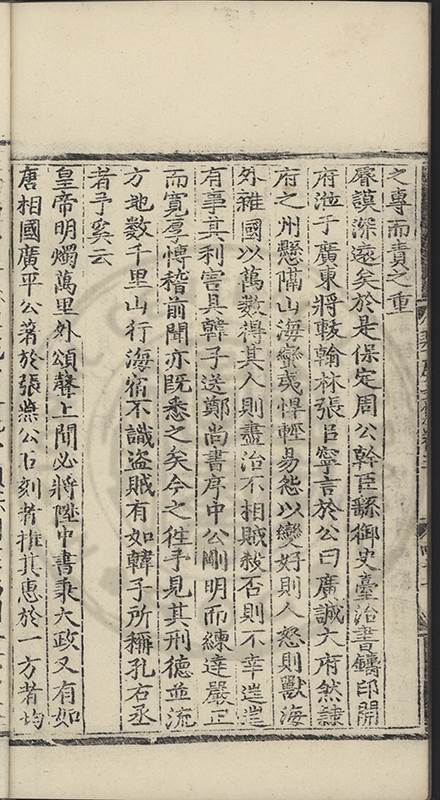 之專而責之重
睿謨深遠矣於是保定周公幹臣繇御史臺治書鑄印開
府涖于廣東將翰林張㠯寧言於公曰廣誠大府然隷
府之州懸隔山海蠻夷悍輕易怨以變好則人怒則獸海
外雜國以萬數得其人則盡治不相賊殺否則不幸
有事其利害具韓子送鄭尚書序中公剛明而練達嚴正
而寬厚博稽前聞亦既悉之矣今之徃乎見其刑德並流
方地数千里山行海宿不識盜賊有如韓子所稱孔右丞
者乎奚云
皇帝明燭萬里外頌聲上聞必將陞中書秉大政又有如
唐相國廣平公著於張燕公石刻者推其惠於一方者均